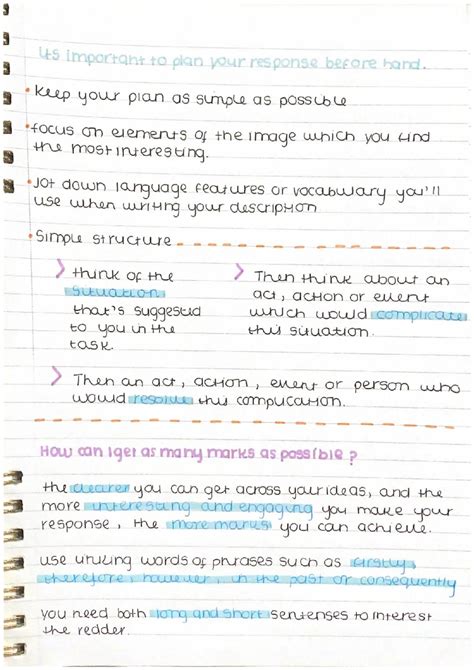 its important to plan your response before hand.
• Keep your plan as simple as possible
• focus on elements of the image which you find
the most interesting.
• Jot down language features or vocabulary you'll
use when writing your description
• Simple structure
> think of the
situation
that's suggested
to you in the
task.
> Then think about an
act, action or event
which would complicate
this situation.
> Then an act, action, event or person who
would resolve this complication.
How can I get as many marks as possible?
the clearer you can get across your ideas, and the
more interesting and engaging you make your
response, the more marks you can achieve.
use linking words of phrases such as firstly,
therefore, however, in the past or consequently
you need both long and short sentences to interest
the redder.